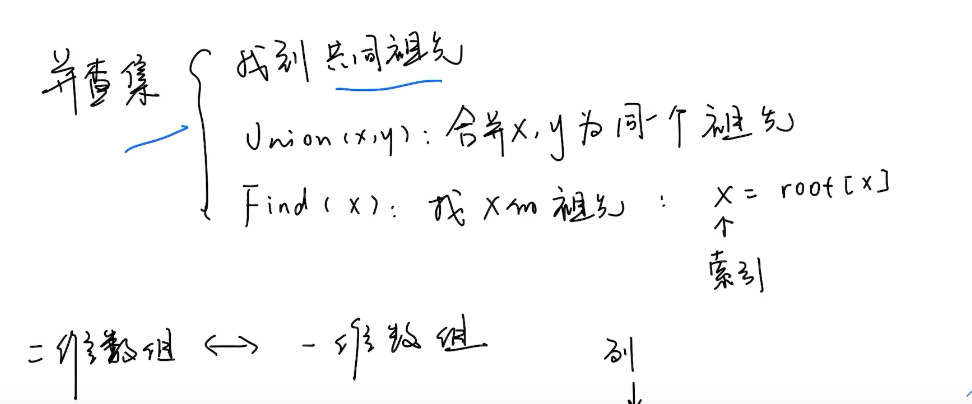 并查集
找到共同祖先
Union(x,y): 合并x,y为同一个祖先
Find(x): 找x的祖先: x = root[x]
↑
索引
二维数组 ↔ 一维数组
列
↓